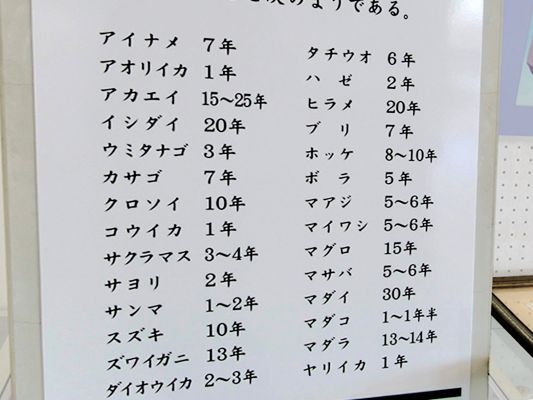 次のようである。
アイナメ 7年
アオリイカ 1年
アカエイ 15〜25年
イシダイ 20年
ウミタナゴ 3年
カサゴ 7年
クロソイ 10年
コウイカ 1年
サクラマス 3〜4年
サヨリ 2年
サンマ 1〜2年
スズキ 10年
ズワイガニ 13年
ダイオウイカ 2〜3年
タチウオ 6年
ハゼ 2年
ヒラメ 20年
ブリ 7年
ホッケ 8〜10年
ボラ 5年
マアジ 5〜6年
マイワシ 5〜6年
マグロ 15年
マサバ 5〜6年
マダイ 30年
マダコ 1〜1年半
マダラ 13〜14年
ヤリイカ 1年